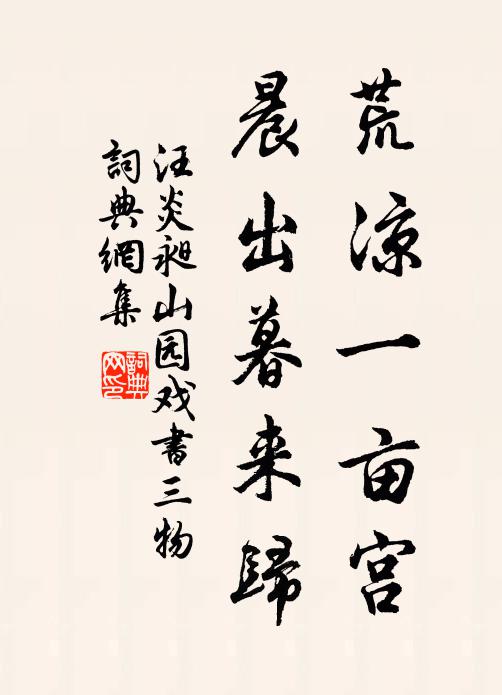 荒凉一亩宫
晨出暮来歸
汪炎昶山园戏書三物
詞典網集
詞典网印